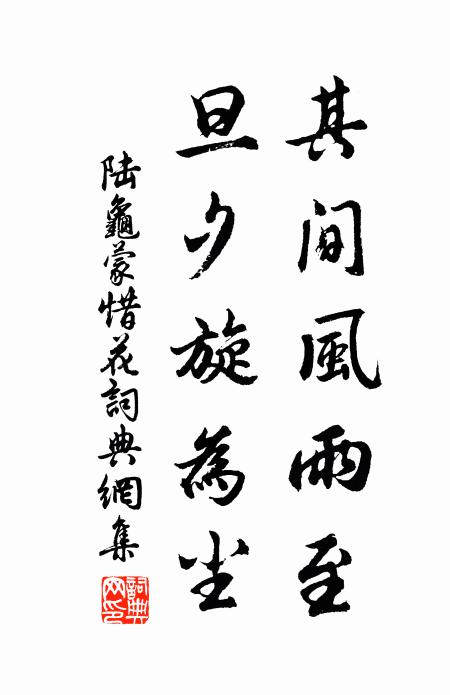 其間風雨至
旦夕旋為尘
陆龜蒙惜花詞典網集
詞典網印